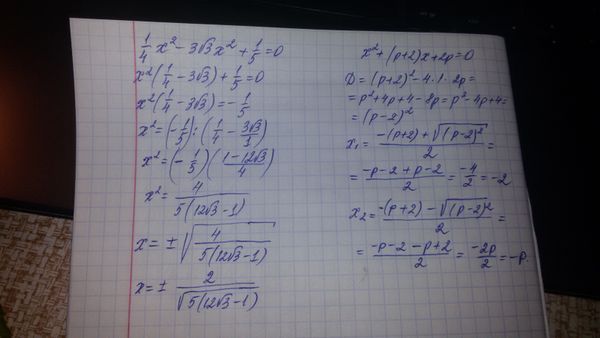 1/4 x² - 3√3 x² + 1/5 = 0
x²(1/4 - 3√3) + 1/5 = 0
x²(1/4 - 3√3) = - 1/5
x² = (- 1/5) : (1/4 - 3√3/1)
x² = (- 1/5)((1 - 12√3)/4)
x² = 4/(5(12√3 - 1))
x = ± √(4/(5(12√3 - 1)))
x = ± 2/√(5(12√3 - 1))
x² + (p+2)x + 2p = 0
D = (p+2)² - 4·1·2p =
= p² + 4p + 4 - 8p = p² - 4p + 4 =
= (p-2)²
x₁ = (-(p+2) + √((p-2)²))/2 =
= (-p - 2 + p - 2)/2 = -4/2 = -2
x₂ = (-(p+2) - √((p-2)²))/2 =
= (-p - 2 - p + 2)/2 = -2p/2 = -p